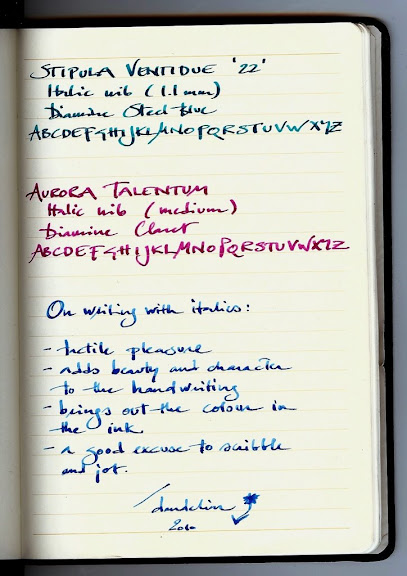 STIPULA VENTIDUE '22'
Italic nib (1.1 mm)
Diamine Steel Blue
ABCDEFGHIJKLMNOPQRSTUVWXYZ
AURORA TALENTUM
Italic nib (medium)
Diamine Claret
ABCDEFGHIJKLMNOPQRSTUVWXYZ
On writing with italics:
- tactile pleasure
- adds beauty and character
to the handwriting
- brings out the colour in
the ink
- a good excuse to scribble
and jot.
dandelion
2010